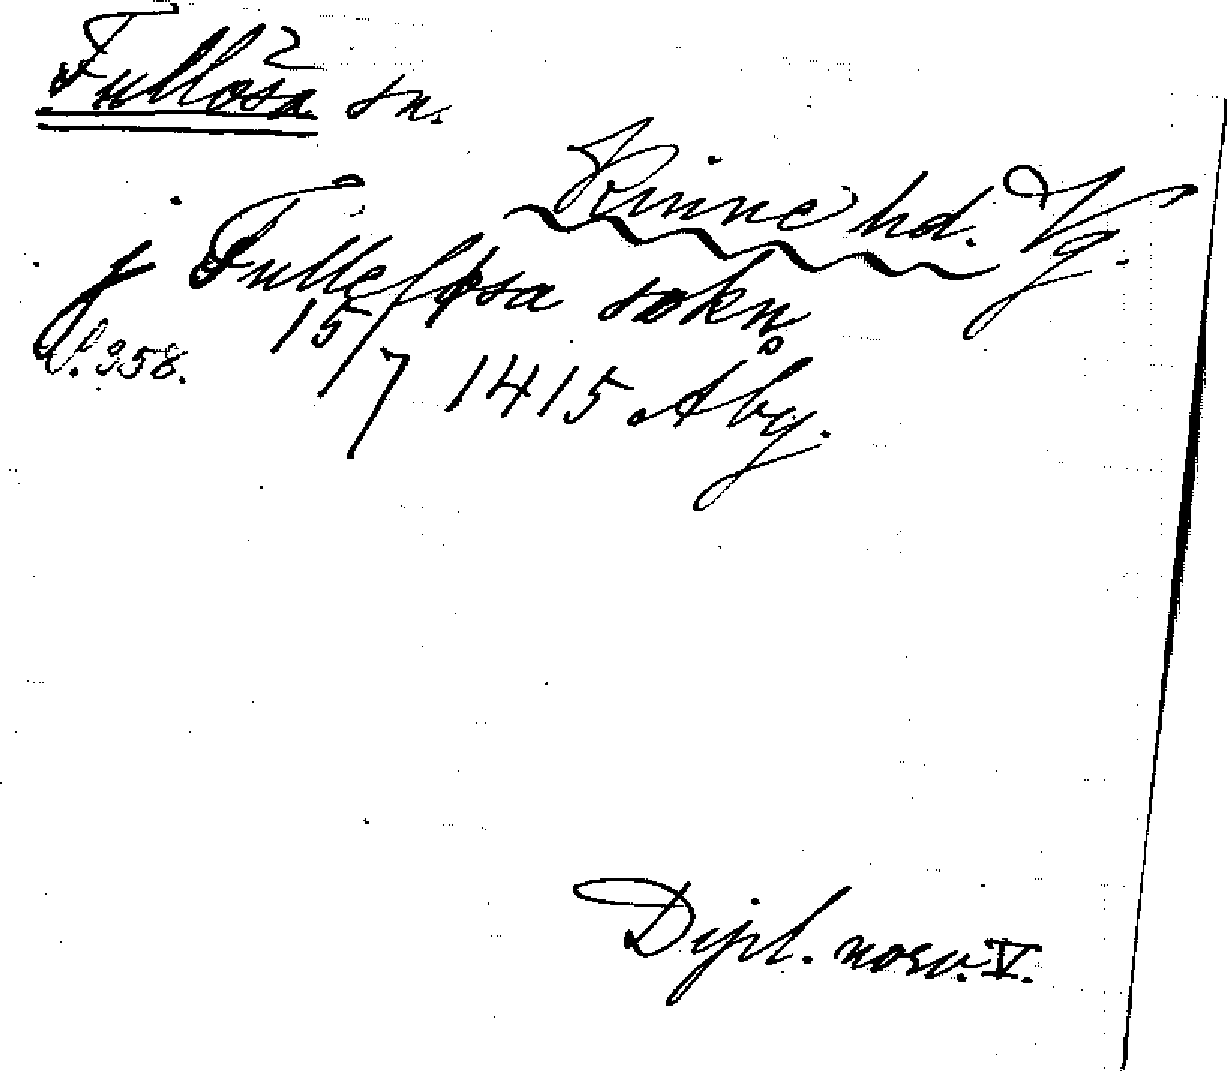 Fullösa sn.
Kinne hd. Vg.
j Fulleløsa sokn
S. 358. 15/7 1415 Åby.
Dipl. norv. V.